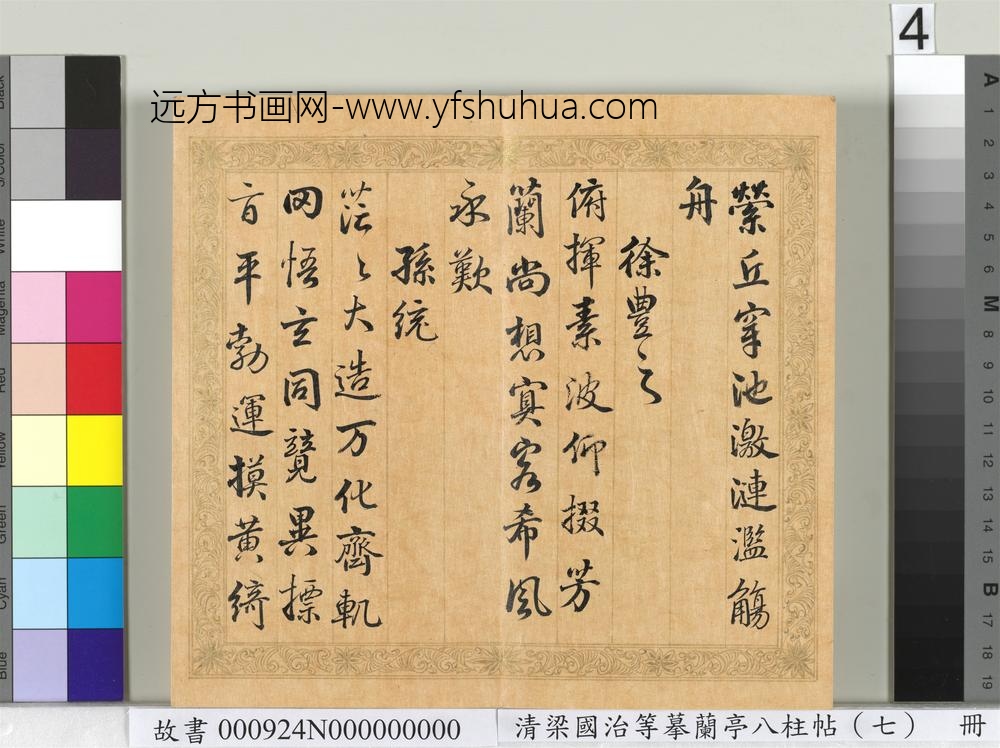 远方书画网-www.yfshuhua.com
4
縈丘穿池激漣濫觴
舟
徐豊之
俯揮素波仰掇芳
蘭尚想客希風
永歎
孫統
茫〻大造万化齊軌
罔悟玄同競異摽
旨平勃運摸黄綺
故書 000924N000000000
清梁國治等摹蘭亭八柱帖（七） 冊
Black
3/Color
White
Magenta
Red
Yellow
Green
Cyan
Blue
A
1
2
3
4
5
6
M
8
9
10
11
12
13
14
15
B
17
18
19